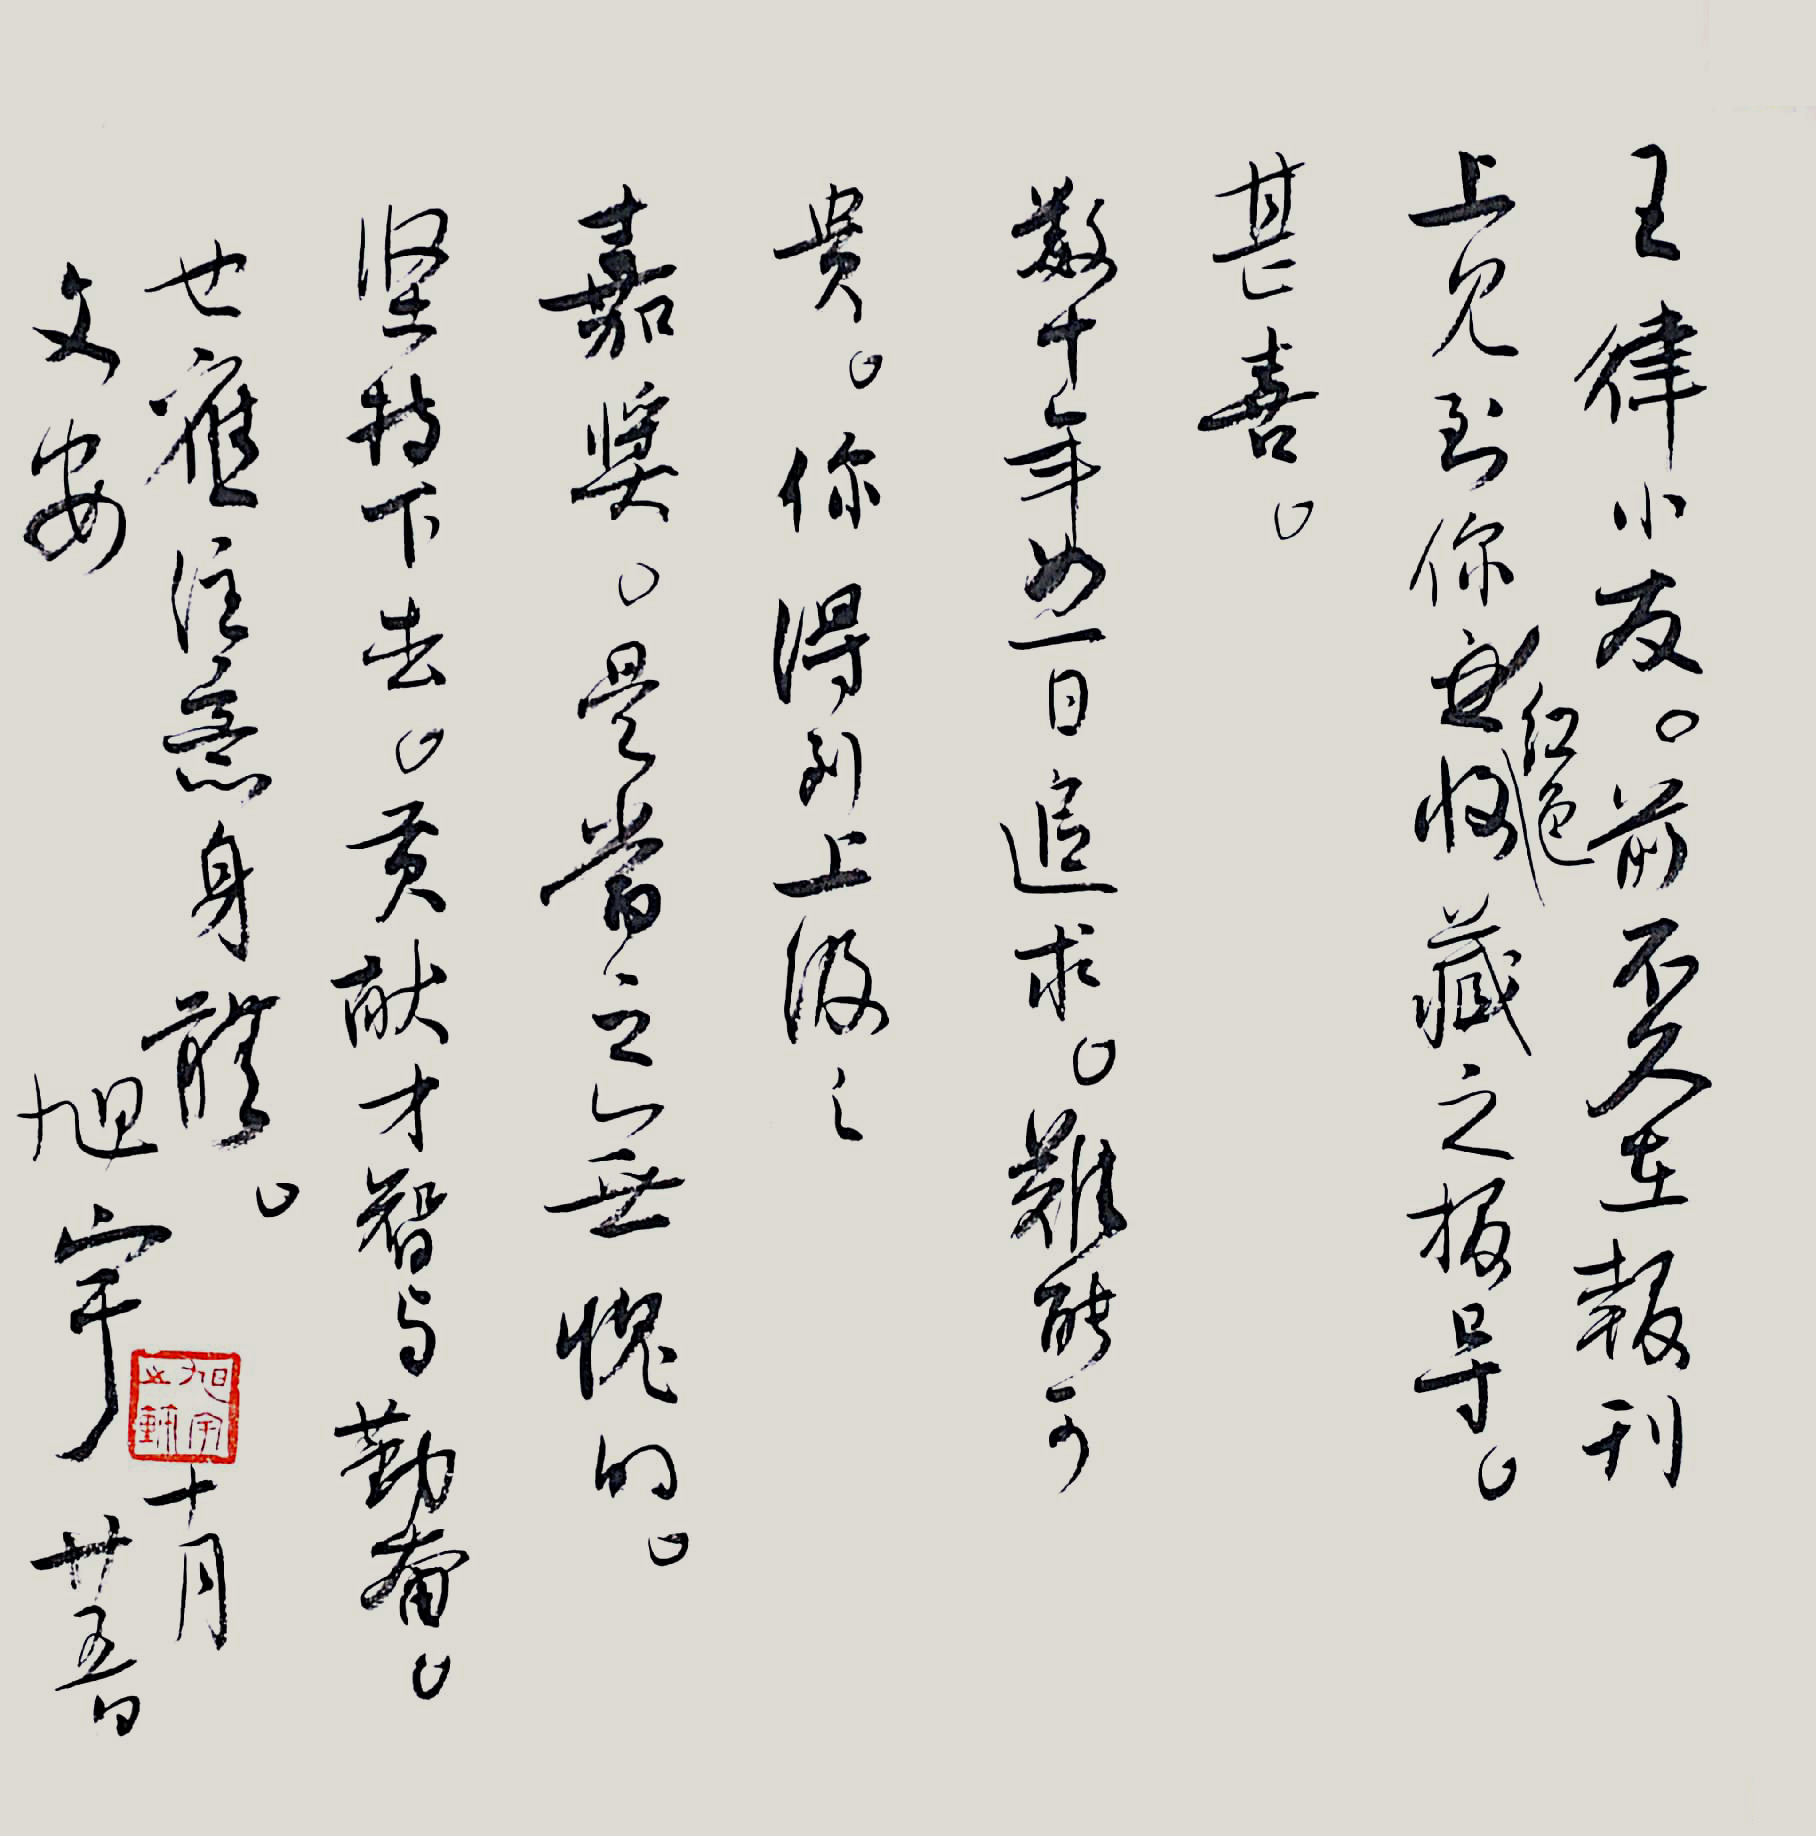 王律小友。前不久在報刊
上见到你与收藏之报导。
红色
甚喜。
数十年如一日追求。難能可
贵。你得到上级之
嘉奖。是当之无愧的。
坚持下去。贡献才智与勤奋。
也应注意身體。
文安
旭宇
十月
廿五日
旭宇之鉨